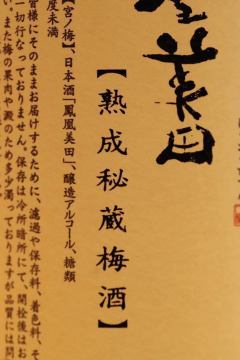 凰美田
【熟成秘蔵梅酒】
【宮ノ梅】、日本酒「鳳凰美田」、醸造アルコール、糖類
度未満
皆様にそのままお届けするために、濾過や保存料、着色料、そ
一切行なっておりません。保存は冷所暗所にて、開栓後はお
い。また梅の果肉や澱のため多少濁っておりますが品質には問